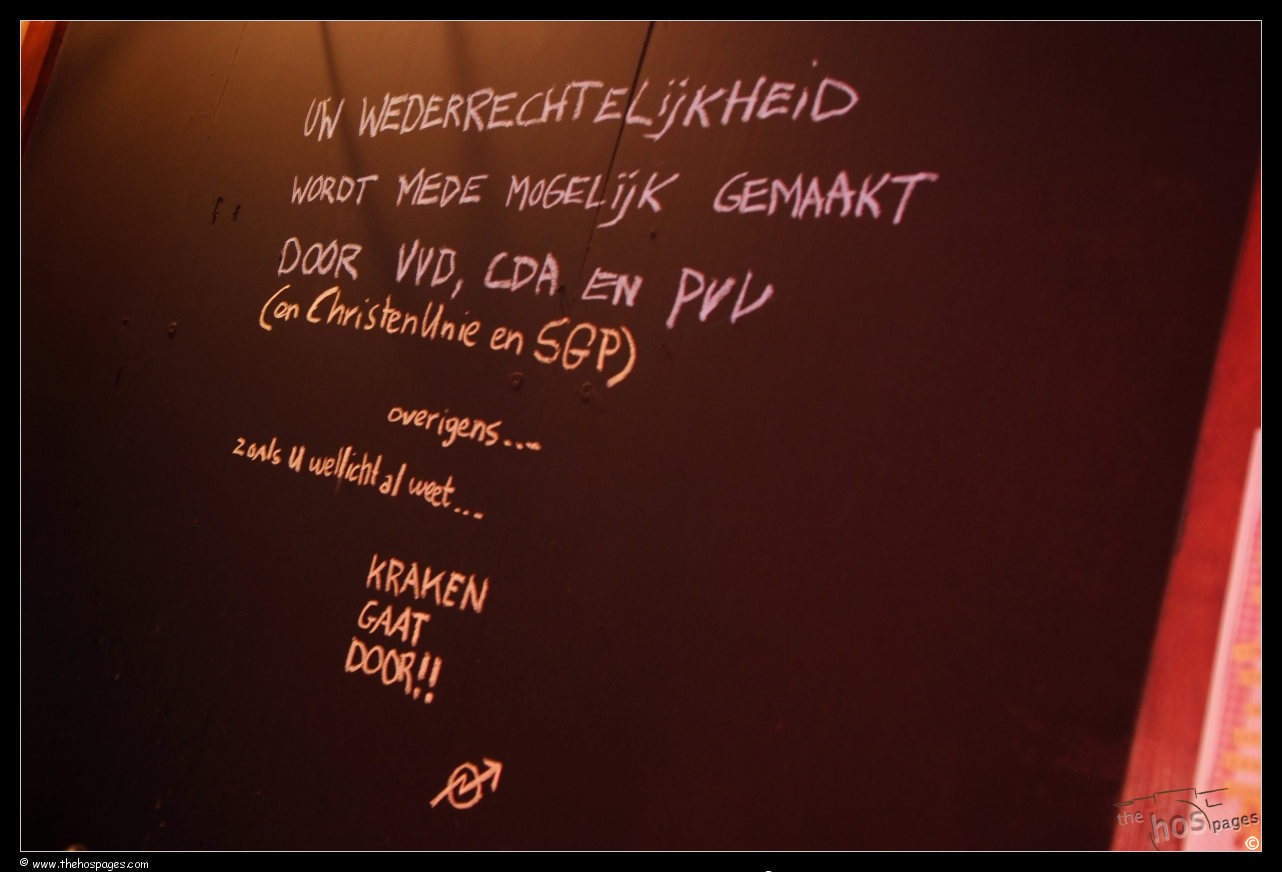 UW WEDERRECHTELIJKHEID
WORDT MEDE MOGELIJK GEMAAKT
DOOR VVD, CDA EN PVV
(en ChristenUnie en SGP)
overigens....
zoals U wellicht al weet...
KRAKEN
GAAT
DOOR!!
the hos pages
©
© www.thehospages.com